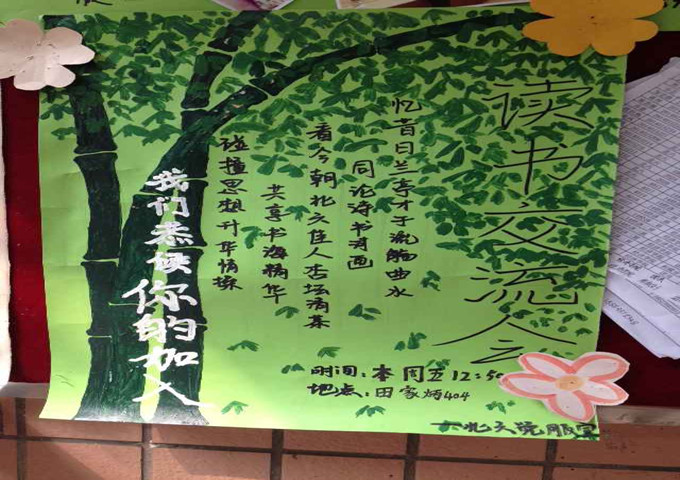 读书交流会
忆昔日兰亭才子流觞曲水
同论诗书画
看今朝北文佳人杏坛集
共享书海精华
碰撞思想升华情操
我们恭候你的加入
时间：本周五12:50
地点：田家炳404
北文院服宣